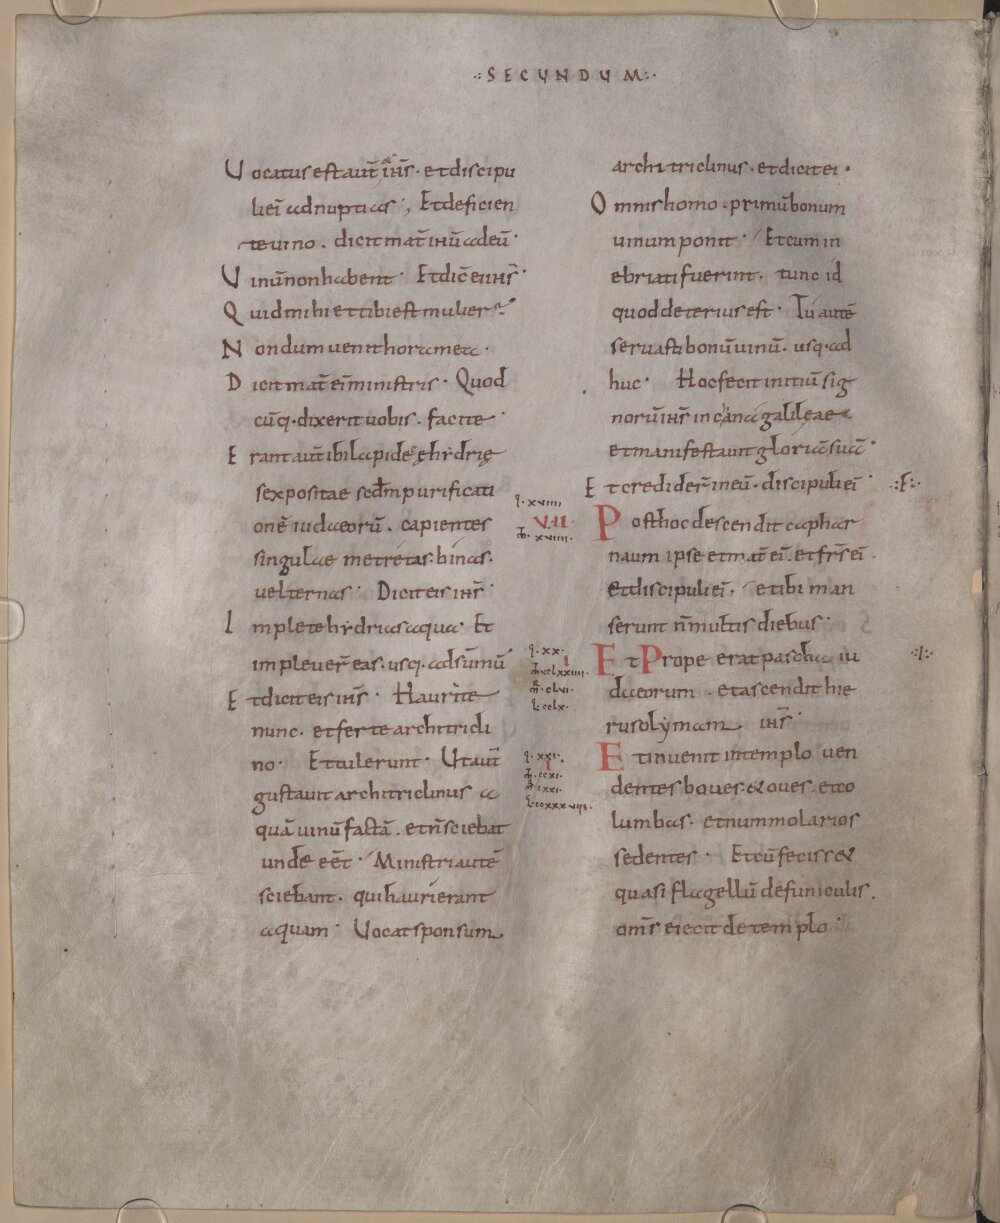 ·:SECUNDUM:·
Uocatus est aut̄ ih̄s · et discipu
li ei᷒ ad nuptias ·, Et deficien
te uino . dicit mat̄ ihū ad eū ·
Uinū non habent · Et dic̄ ei ih̄s ·
Quid mihi et tibi est mulier
Nondum uenit hora mea ·
Dicit mat̄ ei᷒ ministris · Quod
cūq · dixerit uobis . facite ·
Erant aut̄ ibi lapideę hydrię
sex positae scd̄m purificati
onē iudaeorū . capientes
singulae metretas · binas ·
uel ternas · Dicit eis ih̄s ·
Implete hydrias aqua · Et
impleuer̄ eas . usq · ad sūmū
Et dicit eis ih̄s · Haurite
nunc . et ferte architricli
no · Et tulerunt · Ut aut̄
gustauit architriclinus a
quā uinū factā . et n̄ sciebat
unde eēt · Ministri autē
sciebant . qui haurierant
aquam · Uocat sponsum
architriclinus · et dicit ei ·
Omnis homo · primū bonum
uinum ponit · Et cum in
ebriati fuerint . tunc id
quod deterius est · Tu autē
seruasti bonū uinū . usq · ad
huc · Hoc fecit initiū sig
norū ih̄s in cana galileae
et manifestauit gloriā suā ·
Et credider̄ in eū · discipuli ei᷒ ·:F:·
·xviiii
VII
·xviiii·
Post hoc descendit caphar
naum ipse et mat̄ ei᷒ . et fr̄s ei᷒ .
et discipuli ei᷒ · et ibi man
serunt n̄ multis diebus ·
·xx·
I
·clxxiiii·
·clvi·
·cclx·
Et Prope erat pascha iu ·:I:·
daeorum · et ascendit hie
rusolymam ih̄s ·
·xxi·
I
·ccxi·
·cxxi·
·ccxxxviii·
Et inuenit in templo uen
dentes boues · & oues . et co
lumbas · et nummolarios
sedentes · Et cū feciss&
quasi flagellū de funiculis .
om̄s eiecit de templo ·